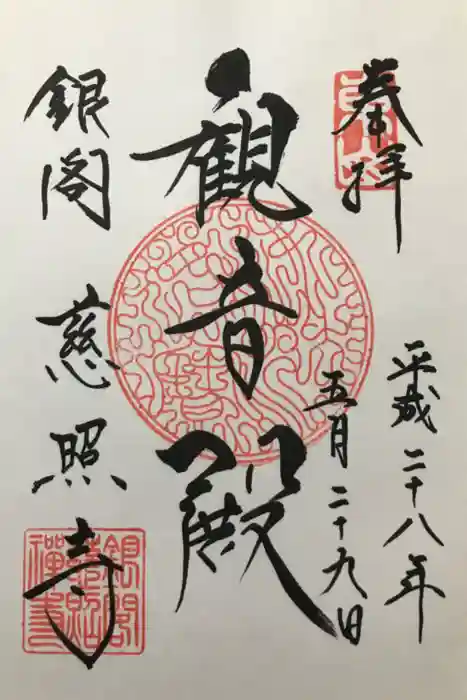 奉拝
平成二十八年
五月二十九日
観音殿
銀閣 慈照寺